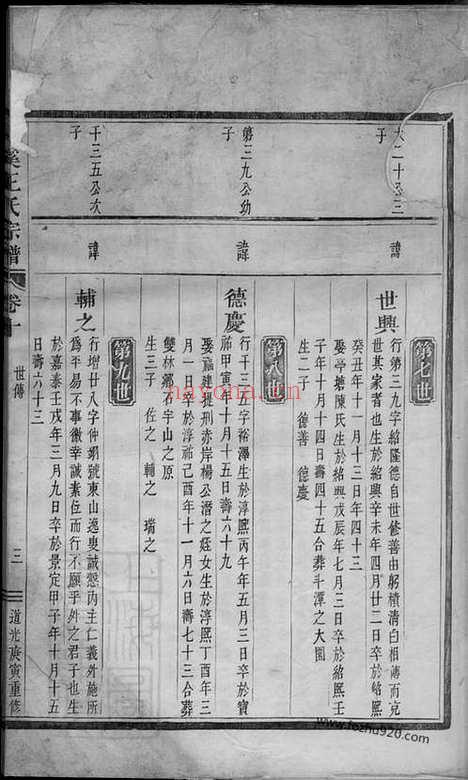 第七世
大二十公三
子
諱
世興
行第三九字紹隆德自世修善由躬積清白相傳而克
世其家者也生於紹興辛未年四月廿二日卒於紹熙
癸丑年十一月十三日年四十三
娶亭塘陳氏生於紹興戊辰年七月三日卒於紹熙壬
子年十月十四日壽四十五合葬斗潭之大園
生二子 德善 德慶
第八世
第三九公幼
子
諱
德慶
行千三五字裕澤生於淳熙丙午年五月三日卒於寶
祐甲寅年十月十五日壽六十九
娶福建提刑赤岸楊公潛之姪女生於淳熙丁酉年三
月一日卒於淳祐己酉年十一月六日壽七十三合葬
雙林鄉石宇山之原
生三子 佐之 輔之 瑞之
第九世
千三五公次
子
諱
輔之
行增廿八字仲錫號東山逸叟誠慤內主仁義外施所
為平易不事徼幸誠素位而行不願乎外之君子也生
於嘉泰壬戌年三月九日卒於景定甲子年十月十五
日壽六十三
溪王氏宗譜
卷十
世傳
三
道光庚寅重修
nayona.com
www.fozhu920.com